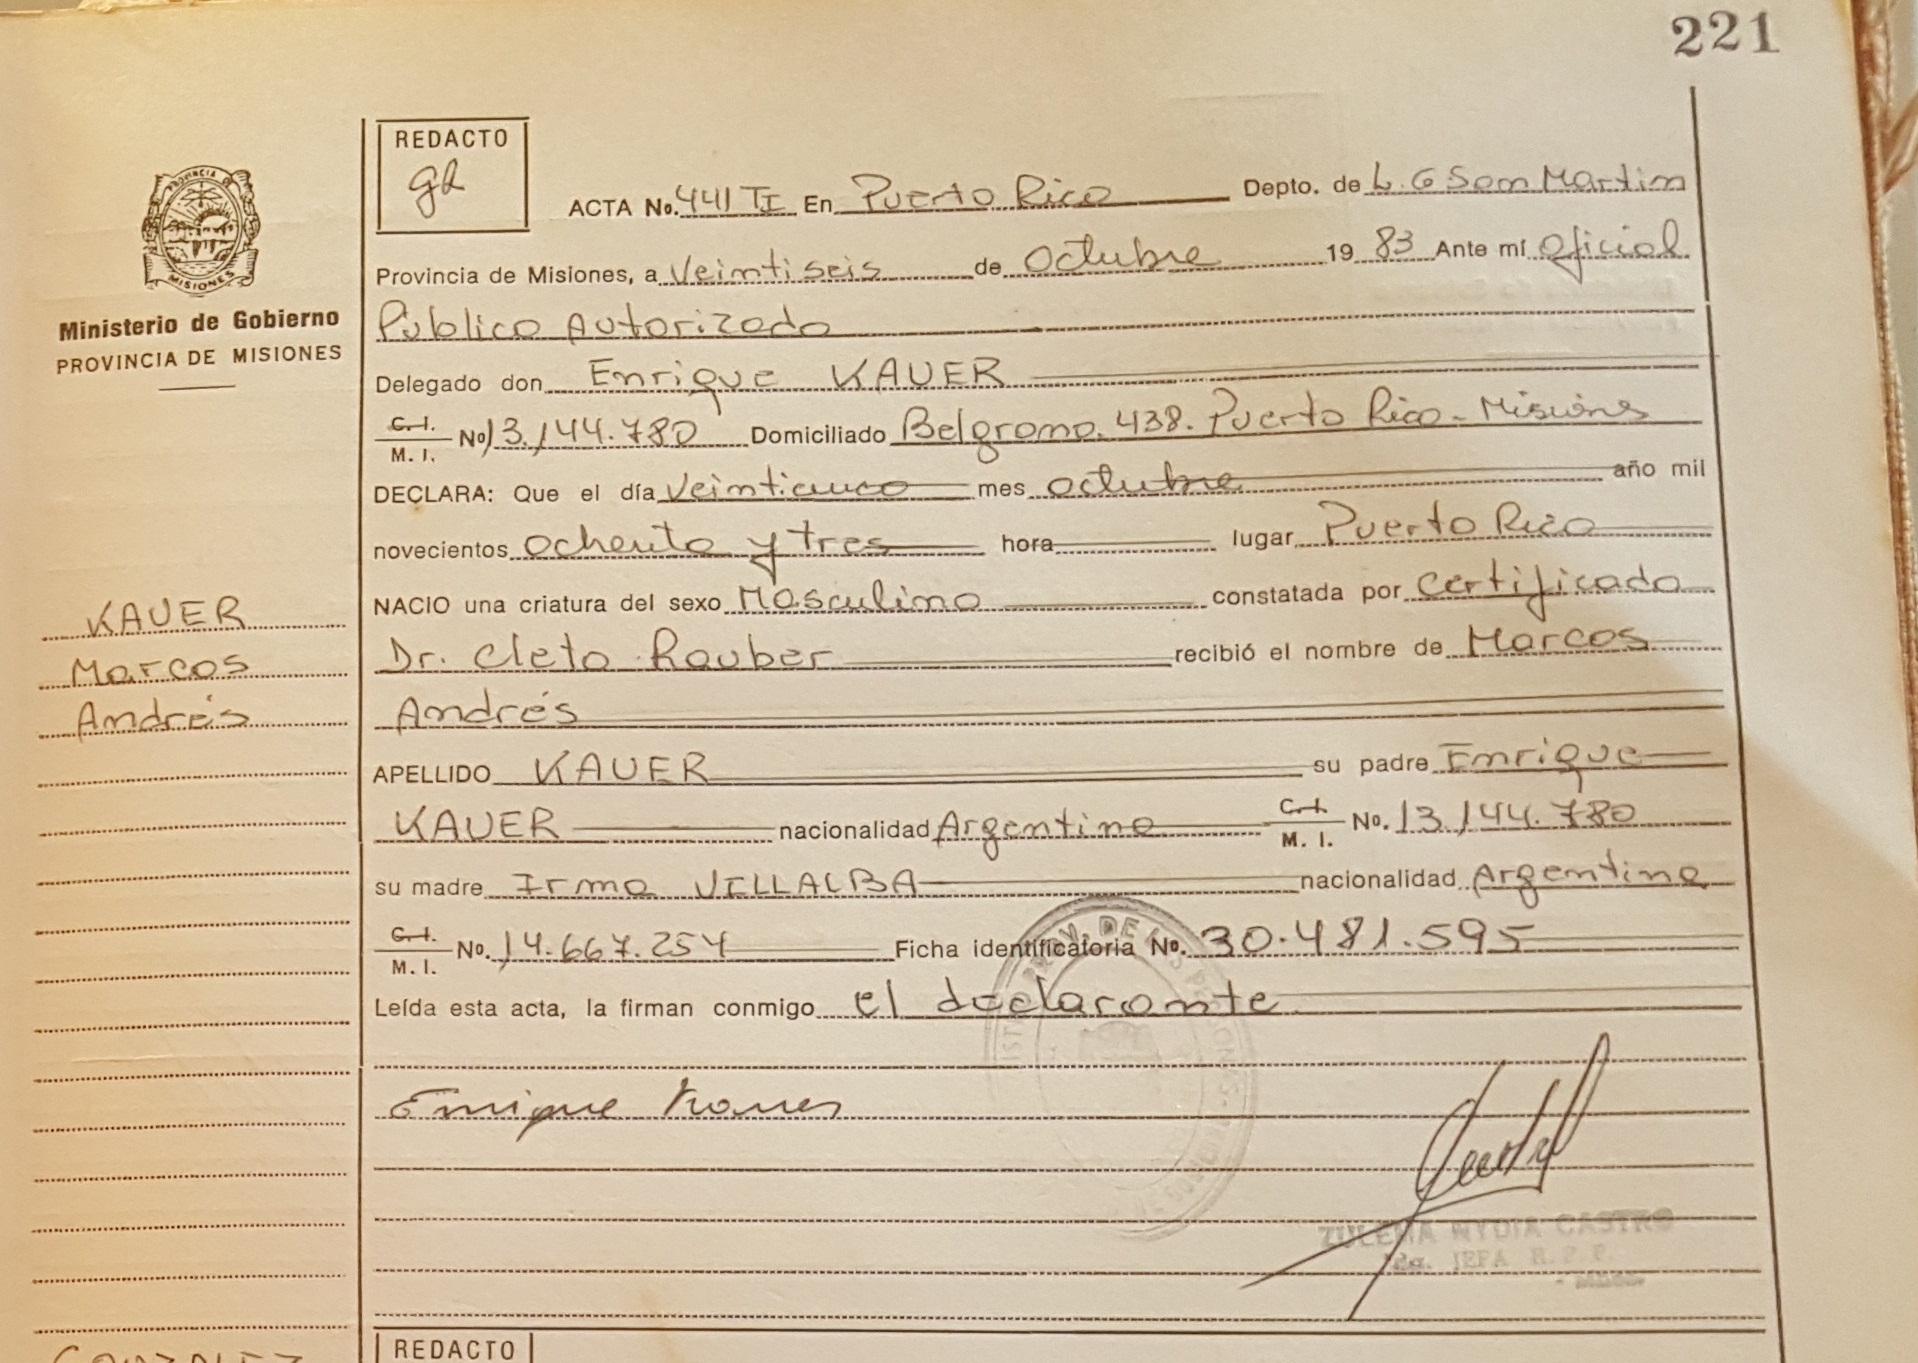 221
REDACTO
PROVINCIA DE
MISIONES
Ministerio de Gobierno
PROVINCIA DE MISIONES
ACTA No. 441 TI En Puerto Rico Depto. de L. G San Martin
Provincia de Misiones, a Veintiseis de Octubre 19 83 Ante mí Oficial
Publico Autorizado
Delegado don Enrique KAUER
C.I. M. I. No 13.144.780 Domiciliado Belgrano. 438. Puerto Rico - Misiones
DECLARA: Que el día Veinticinco mes octubre año mil
novecientos ochenta y tres hora lugar Puerto Rico
NACIO una criatura del sexo Masculino constatada por Certificado
Dr. Cleto Rauber recibió el nombre de Marcos
Andrés
APELLIDO KAUER su padre Enrique
KAUER nacionalidad Argentina C.I. M. I. No. 13.144.780
su madre Irma VILLALBA nacionalidad Argentina
C.I. M. I. No. 14.667.254 Ficha identificatoria No. 30.481.595
Leída esta acta, la firman conmigo el declarante
Enrique Kauer
KAUER
Marcos
Andrés
ZULEMA NYDIA CASTRO
JEFA R.P.P.
GONZALEZ
REDACTO